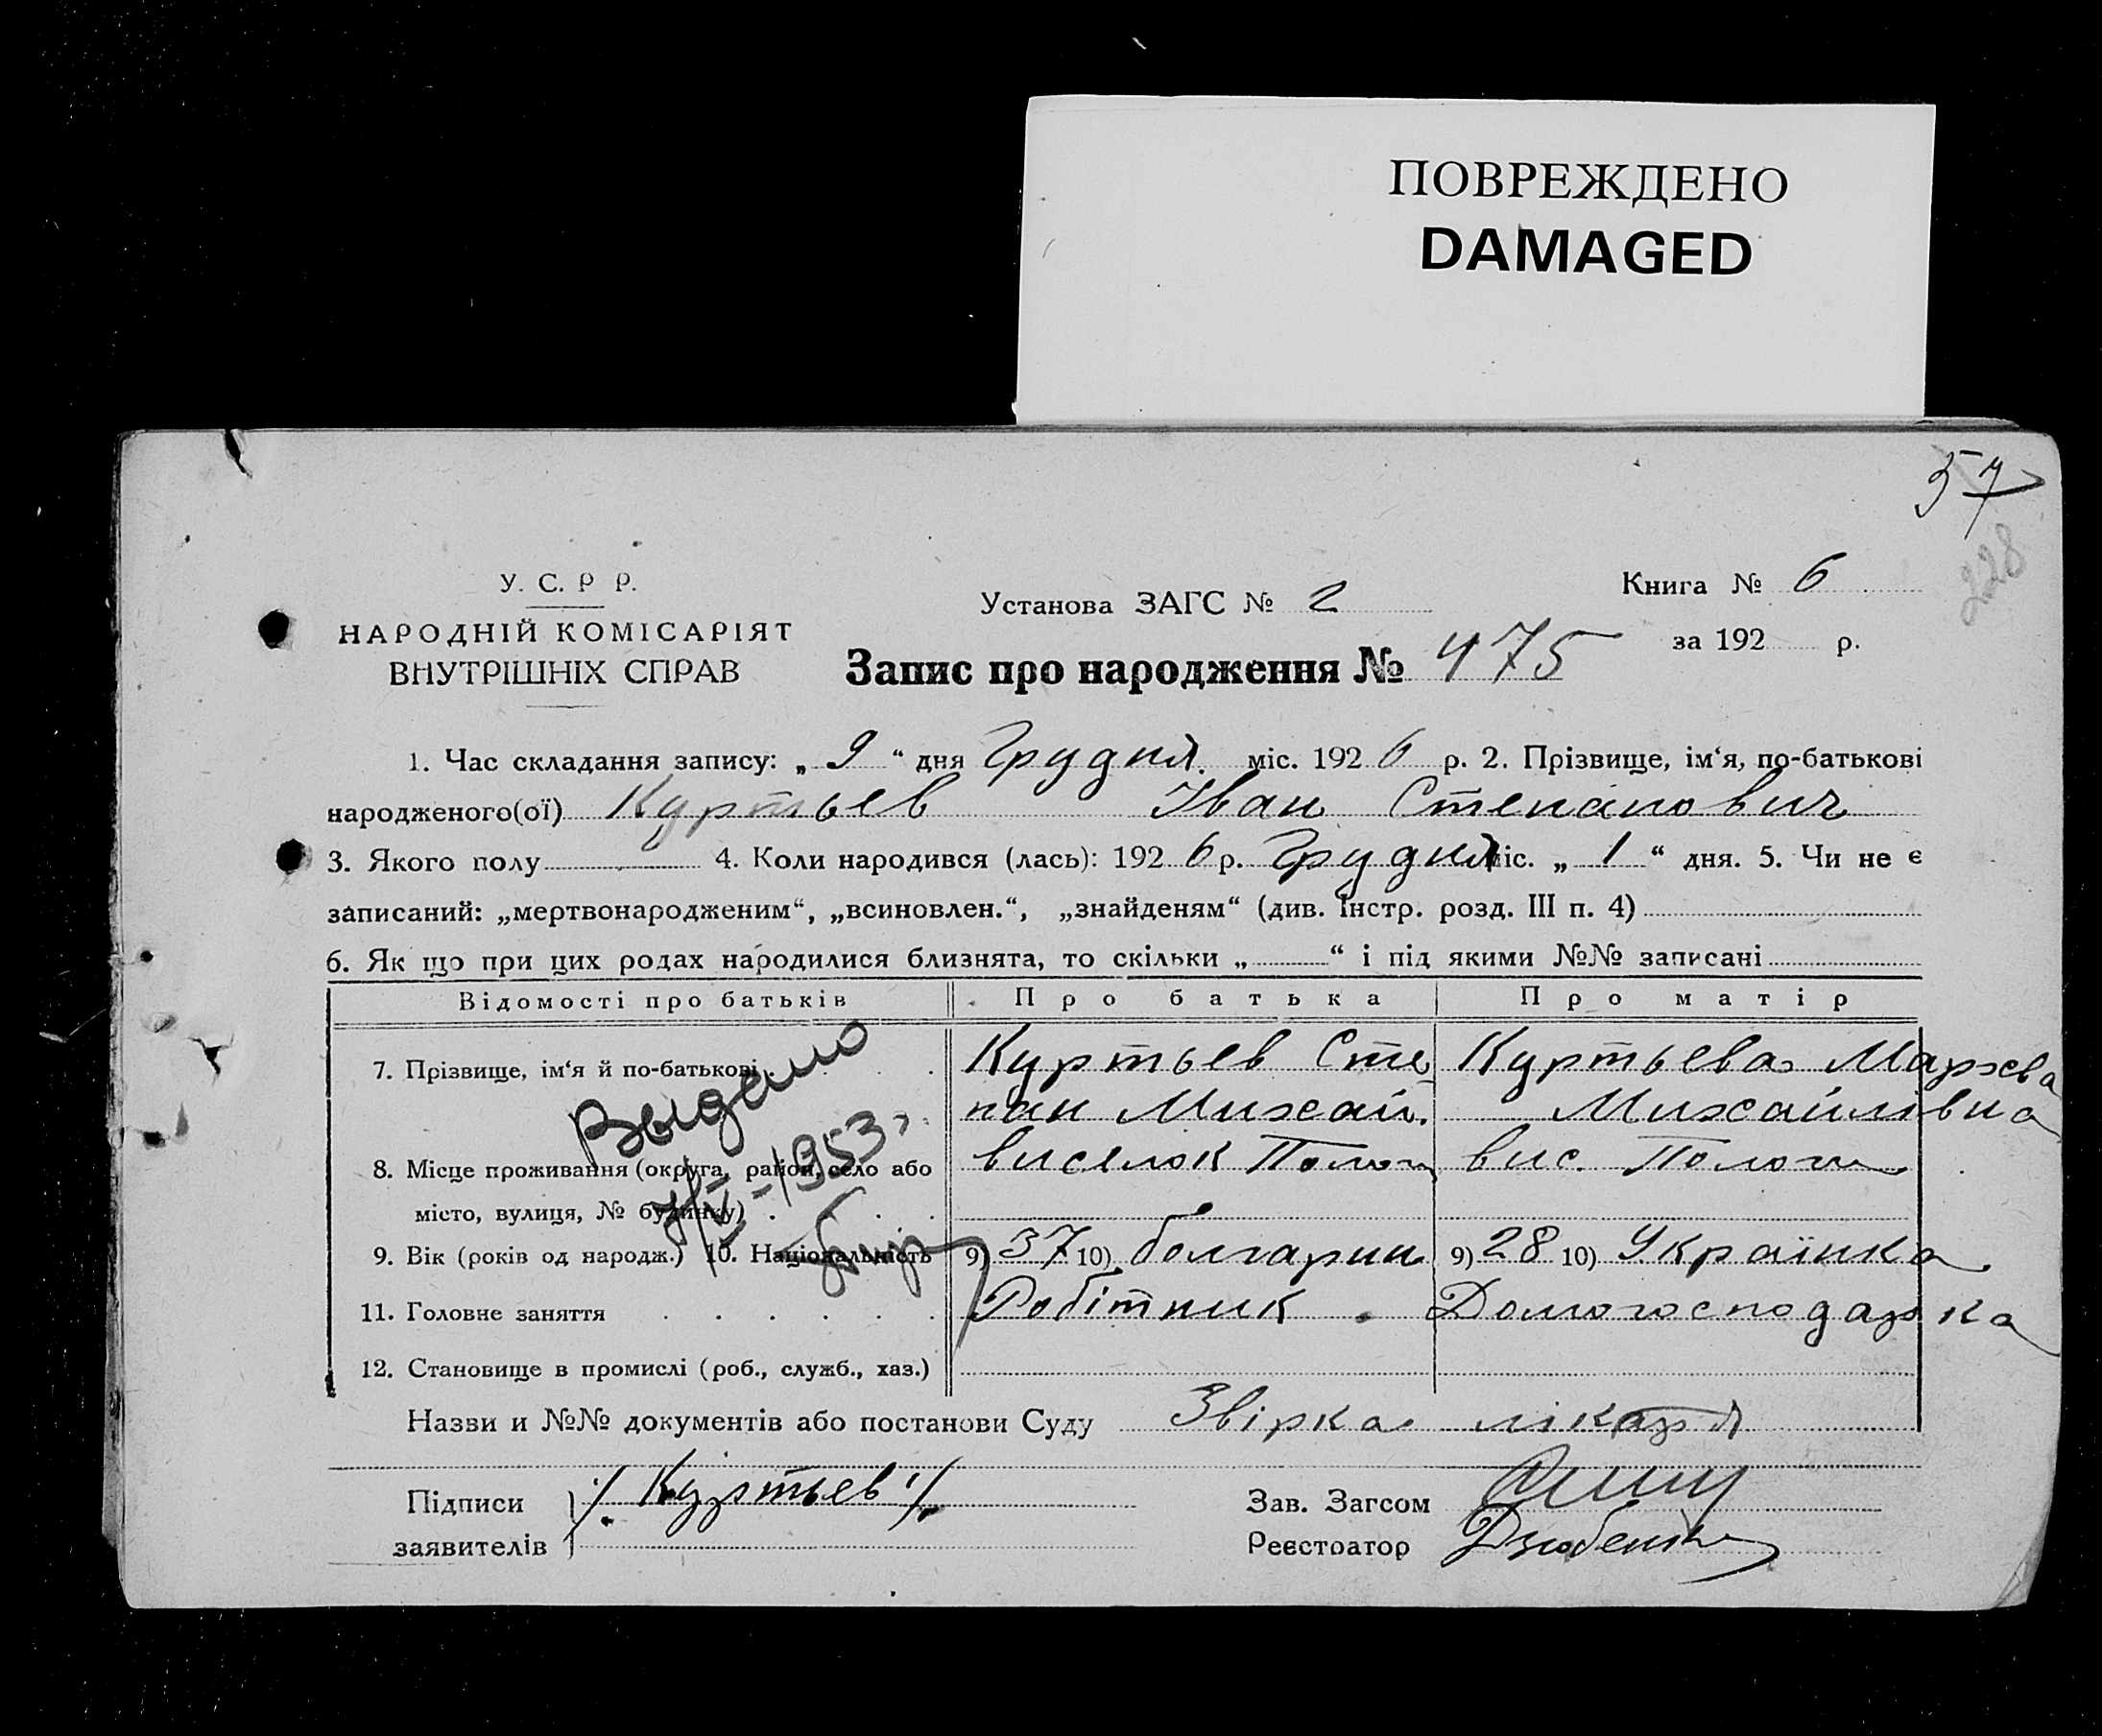 ПОВРЕЖДЕНО
DAMAGED
57
228
У. С. Р Р.
НАРОДНІЙ КОМІСАРІЯТ
ВНУТРІШНІХ СПРАВ
Установа ЗАГС № 2
Книга № 6
за 192 р.
Запис про народження № 475
1. Час складання запису: „ 9 “ дня Грудня міс. 192 6 р. 2. Прізвище, ім‘я, по-батькові
народженого(ої) Куртьев Іван Степанович
3. Якого полу 4. Коли народився (лась): 192 6 р. Грудня міс. „ 1 “ дня. 5. Чи не є
записаний: „мертвонародженим“, „всиновлен.“, „знайденям“ (див. Інстр. розд. III п. 4)
6. Як що при цих родах народилися близнята, то скільки „ “ і під якими №№ записані
Відомості про батьків Про батька Про матір
7. Прізвище, ім‘я й по-батькові Куртьев Сте Куртьева
пан Михай. Михайлівна
Выдано
8. Місце проживання (округа, район, село або виселок Пологи вис. Пологи
7/IV-1953 г.
місто, вулиця, № будинку)
9. Вік (років од народж.) 10. Національність 9) 37 10) болгарин 9) 28 10) Українка
11. Головне заняття Робітник Домогосподарка
12. Становище в промислі (роб., служб., хаз.)
Назви и №№ документів або постанови Суду Звірка лікаря
Підписи /. Куртьев /.
заявителів
Зав. Загсом
Реєстратор Дзюбенко